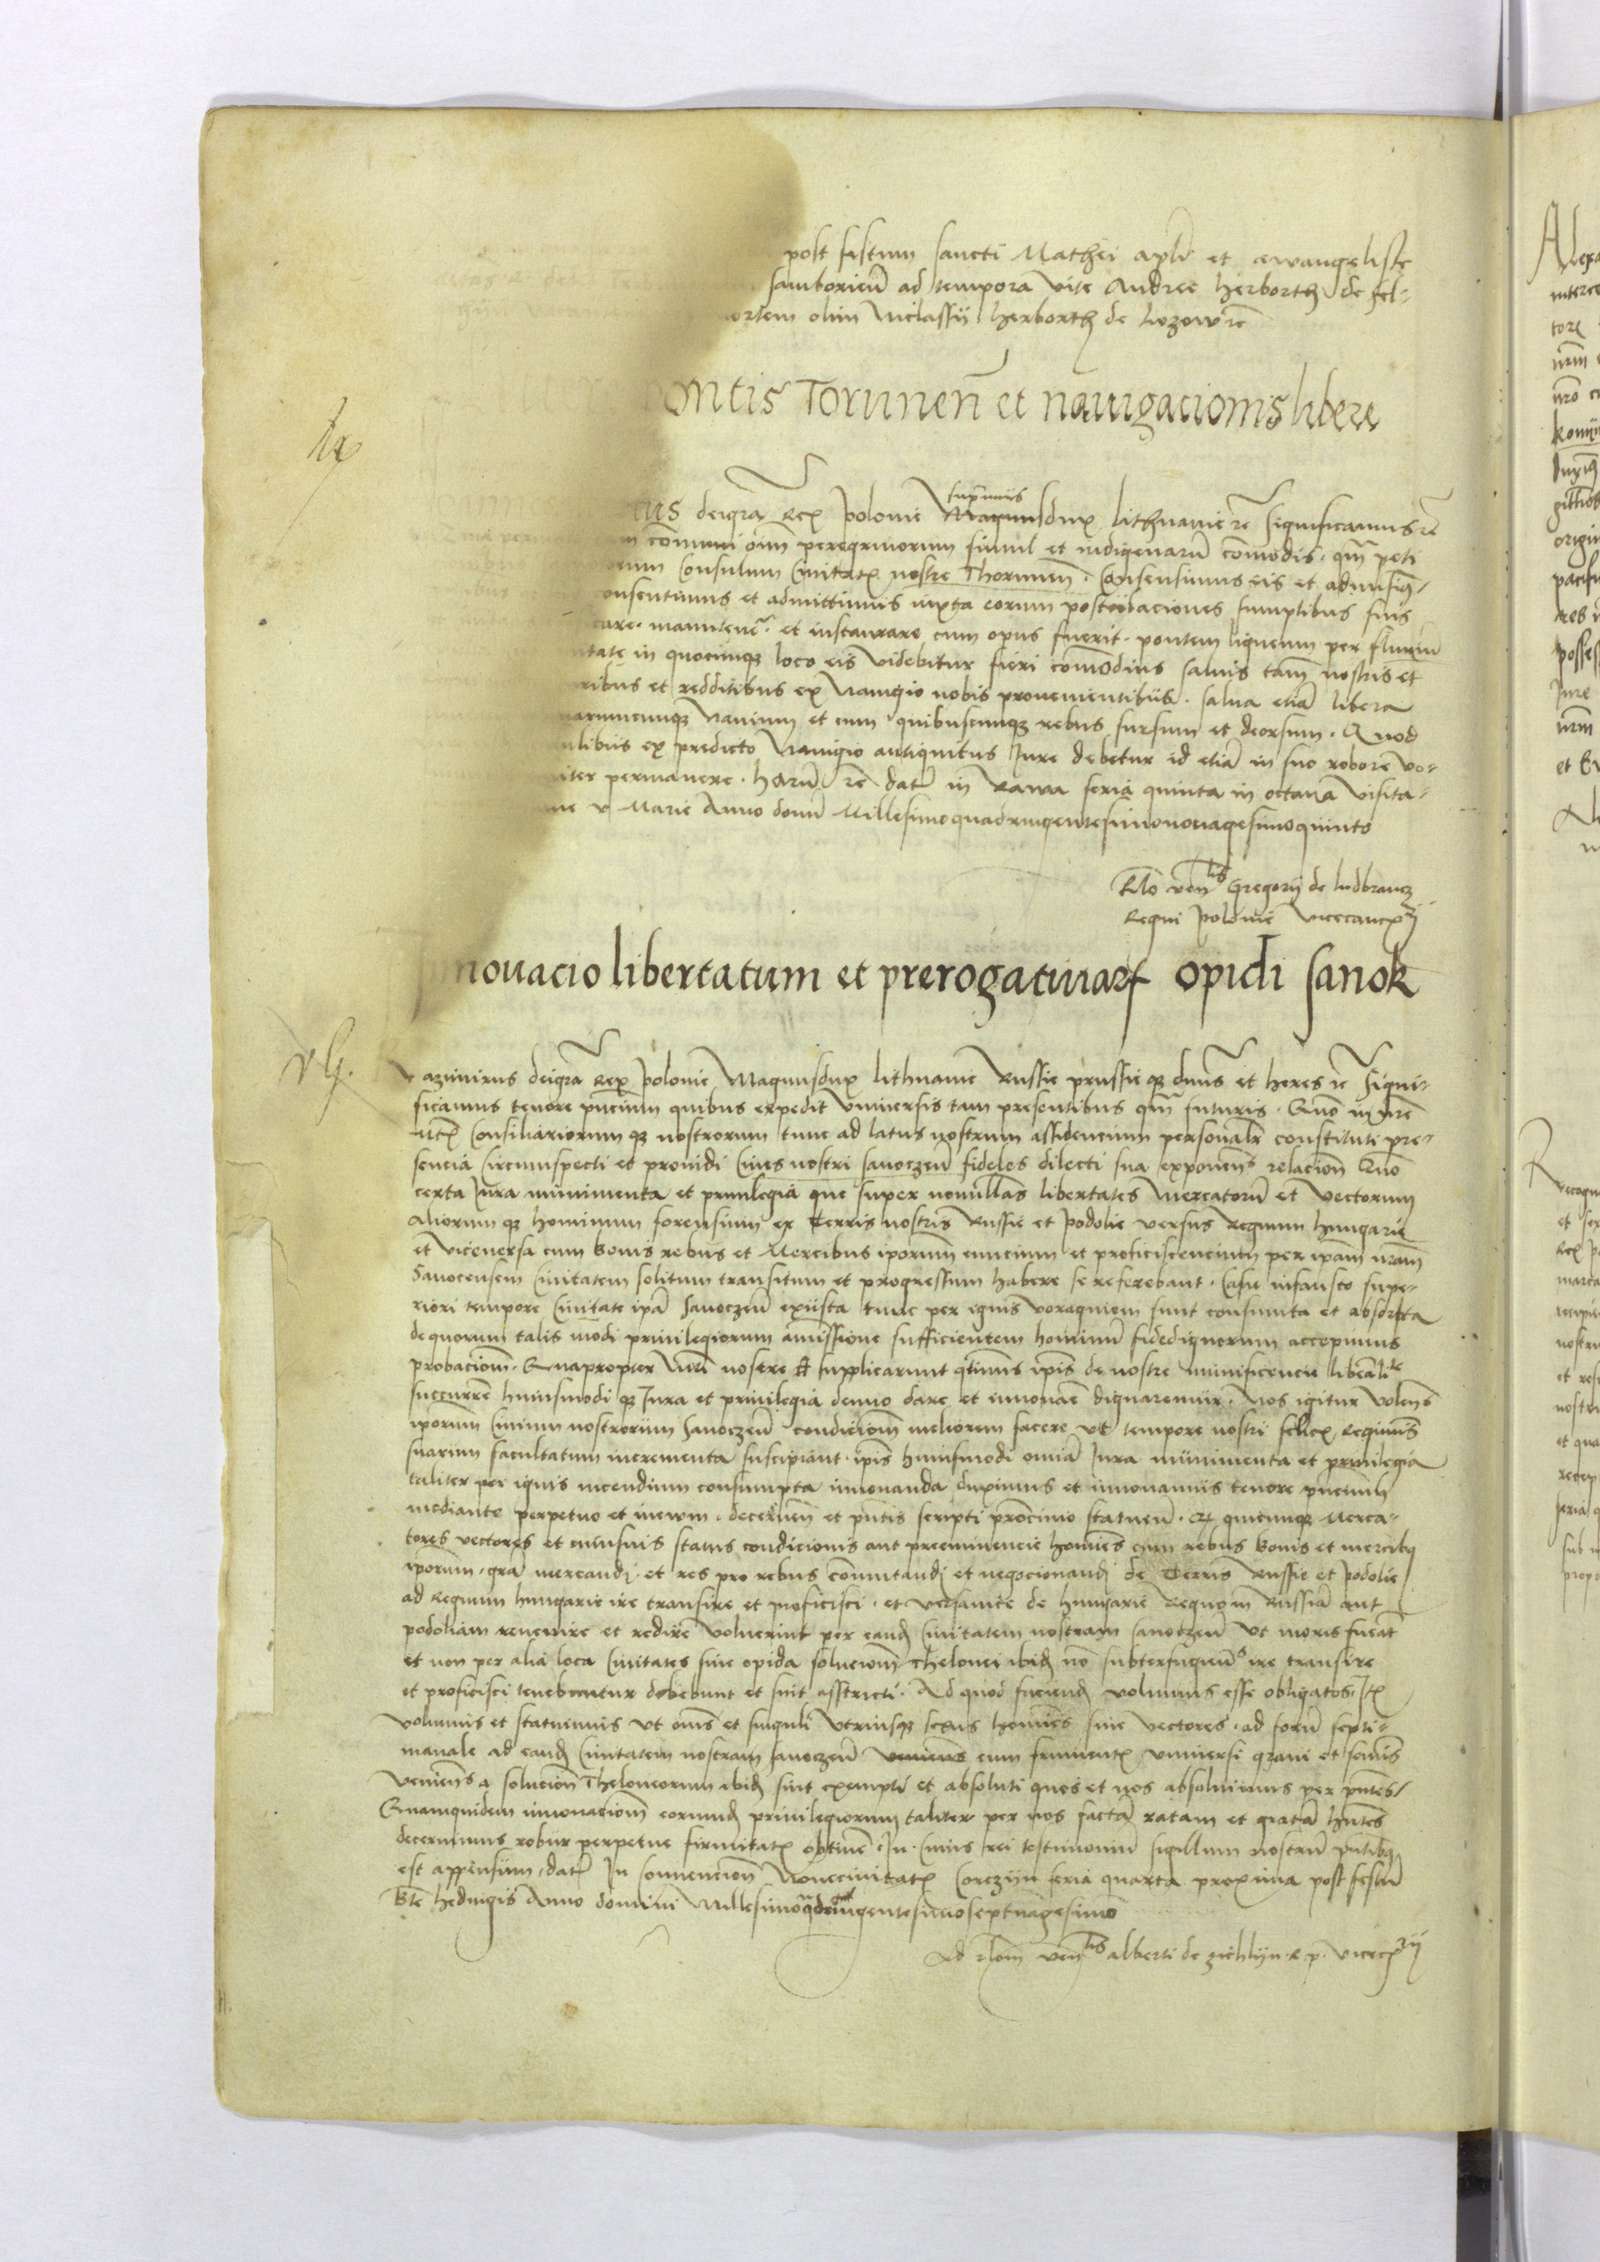 post festum sancti Mathei apli et ewangeliste
samborien ad tempora vite Andree herborth de fel-
ortem olim Niclassii herborth de
ontis Torunen et navigacionis libere
us dei gra Rex Polonie supmus dux lithuanie re Significamus re
communi oim peregrinorum simul et indigenaru comodis qm peti
orum Consulum Civitat nostre Thorunen Consensimus eis et admisi-
onsentimus et admittimus iuxta eorum postulaciones sumptibus suis
care manutene et instaurare cum opus fuerit pontem ligneum per fluviu
itate in quocunque loco eis videbitur fieri comodius salvis tam nostris et
ribus et redditibus ex Navigio nobis provenientibus salva etia libera
arumcunque Navium et cum quibuscunque rebus sursum et deorsum Quod
libus ex predicto Navigio antiquitus Jure debetur id etia in suo robore vo-
iter permanere haru re dat in Rawa feria quinta in octava visita-
ne v Marie Anno domi Millesimoquadringentesimononagesimoquinto
Rlo venlis Gregorii de ludbrancz
Regni Polonie vicecancrii
Innovacio libertatum et prerogativar opidi Sanok
Kazimirus dei gra Rex Polonie Magnus dux lithuanie Russie prussie que dns et heres re Signi-
ficamus tenore pncium quibus expedit Universis tam presentibus qm futuris Quo in nre
Consiliariorum que nostrorum tunc ad latus nostrum assidencium personalr constituti pre-
sencia Circumspecti et providi Cives nostri sanoczen fideles dilecti sua exponens relacion Quo
certa Jura munimenta et privilegia que super nonullas libertates Mercatoru et vectorum
Aliorum que hominum forensium ex Terris nostris Russie et Podolie versus Regnum hungarie
et viceversa cum bonis rebus et Mercibus iporum euncium et proficiscencium per ipam nram
Sanocensem Civitatem solitum transitum et progressum habere se referebant Casu infausto supe-
riori tempore Civitate ipa Sanoczen exusta tunc per ignis voraginem sunt consumta et absorta
de quorum talis modi privilegiorum amissione sufficientem hominu fidedignorum accepimus
probaciom Quapropter nosere supplicarunt qtinus ipis de nostre munificencie liberalite
succurre huiusmodi que Jura et privilegia denuo dare et innovare dignaremur Nos igitur volens
iporum Civium nostrorum Sanoczen condicionem meliorem facere ut tempore nostri felic Regiminis
suarum facultatum incrementa suscipiant ipis huiusmodi omnia Jura munimenta et privilegia
taliter per ignis incendium consumpta innovanda duximus et innovamus tenore pncium
mediante perpetuo et inewm decernen et pntis scripti pncinio statuen quicunque Merca-
tores vectores et cuiusvis status condicionis aut preeminencie homines cum rebus bonis et mercibus
iporum gra mercandi et res pro rebus commutandi et negociandi de Terris Russie et Podolie
ad Regnum hungarie ire transire et proficisci et versavite de hungarie Regno in Russia aut
podoliam revenire et redire voluerint per eand Civitatem nostram sanoczen ut moris fuerat
et non per alia loca Civitates sive opida soluciom Thelonei ibid no subterfugiens ire transire
et proficisci tenebuntur debebunt et sint asstricti Ad quod faciend volumus esse obligatos Ite
volumus et statuimus ut oms et singuli utriusque sexus homines sive vectores ad foru septi-
manale ad eand Civitatem nostram sanoczen cum frument universi grani et seminis
veniens a solucion Theloneorum ibid sint exempti et absoluti quos et nos absolvimus per pntes
Quamquidem innovaciom eorund privilegiorum taliter per nos facta ratam et grata hntes
decernimus robur perpetue firmitat obtine In Cuius rei testimoniu sigillum nostru pntibus
est appensum dat In convencion Novecivitat Corczyn feria quarta proxima post festu
bte hedvigis Anno domini Millesimoquadringentesimoseptuagesimo
Ad rlom venlis alberti de zichlyn R p vicecrii